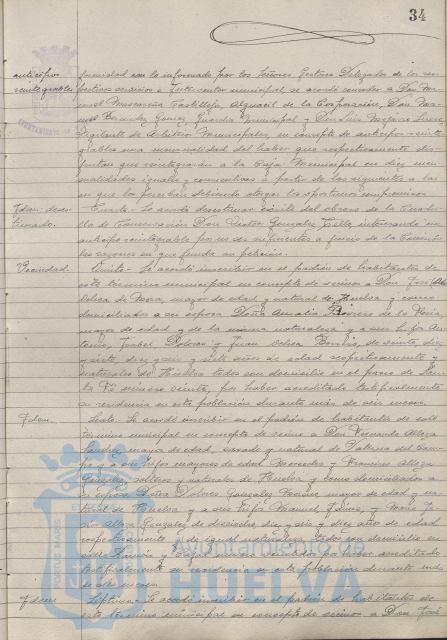 34
anticipos
reintegrables
formidad con lo informado por los Señores Gestores Delegados de los res-
pectivos servicios e Interventor municipal, se acordó conceder a Don Ma-
nuel Mascareña Castilleja, Alguacil de la Corporación, Don Ma-
nuel Bermudez Gomez, Guardia Municipal y Don Luis
Vigilante de Arbitrios Municipales, en concepto de anticipo reinte-
grable una mensualidad del haber que respectivamente dis-
frutan que reintegrarán a la Caja Municipal en diez men-
sualidades iguales y consecutivas a partir de las siguientes a las
en que lo perciban debiendo otorgar los oportunos compromisos
Idem. deses-
timado.
Cuarto.- Se acordó desestimar escrito del obrero de la Cuadri-
lla de Conservación Don Victor Gonzalez Calle interesando un
anticipo reintegrable por no ser suficientes a juicio de la Comisión
las razones en que funda su petición.
Vecindad.
Quinto.- Se acordó inscribir en el padrón de habitantes de
este término municipal en concepto de vecinos a Don José
Ochoa de Mora, mayor de edad y natural de Huelva y como
domiciliados a su esposa Doña Amalia Borrero de la Feria,
mayor de edad y de la misma naturaleza y a sus hijos An-
tonio, Isabel, Dolores y Juan Ochoa Borrero, de veinte, diez
y siete, diez y seis y siete años de edad respectivamente y
naturales de Huelva todos con domicilio en el paseo de San-
ta Fé número veinte, por haber acreditado testificalmente
su residencia en esta población durante más de seis meses.
Idem.
Sexto.- Se acordó inscribir en el padrón de habitantes de este
término municipal en concepto de vecino a Don Fernando Alloza
Sanchez, mayor de edad, casado y natural de Valverde del Cami-
no y a sus hijos mayores de edad Mercedes y Francisco Alloza
Gonzalez, solteros y naturales de Huelva y como domiciliados a
su esposa Doña Dolores Gonzalez mayor de edad y na-
tural de Huelva y a sus hijos Manuel, Jaime y Maria Je-
sús Alloza Gonzalez de dieciocho, diez y seis y diez años de edad
respectivamente y de igual naturaleza, todos con domicilio en
calle número por haber acreditado
testificalmente su residencia en esta población durante más
de seis meses.
Idem.
Septimo.- Se acordó inscribir en el padrón de habitantes de
este término municipal en concepto de vecinos a Don José
PORTUS MARIS
Ayuntamiento de
HUELVA